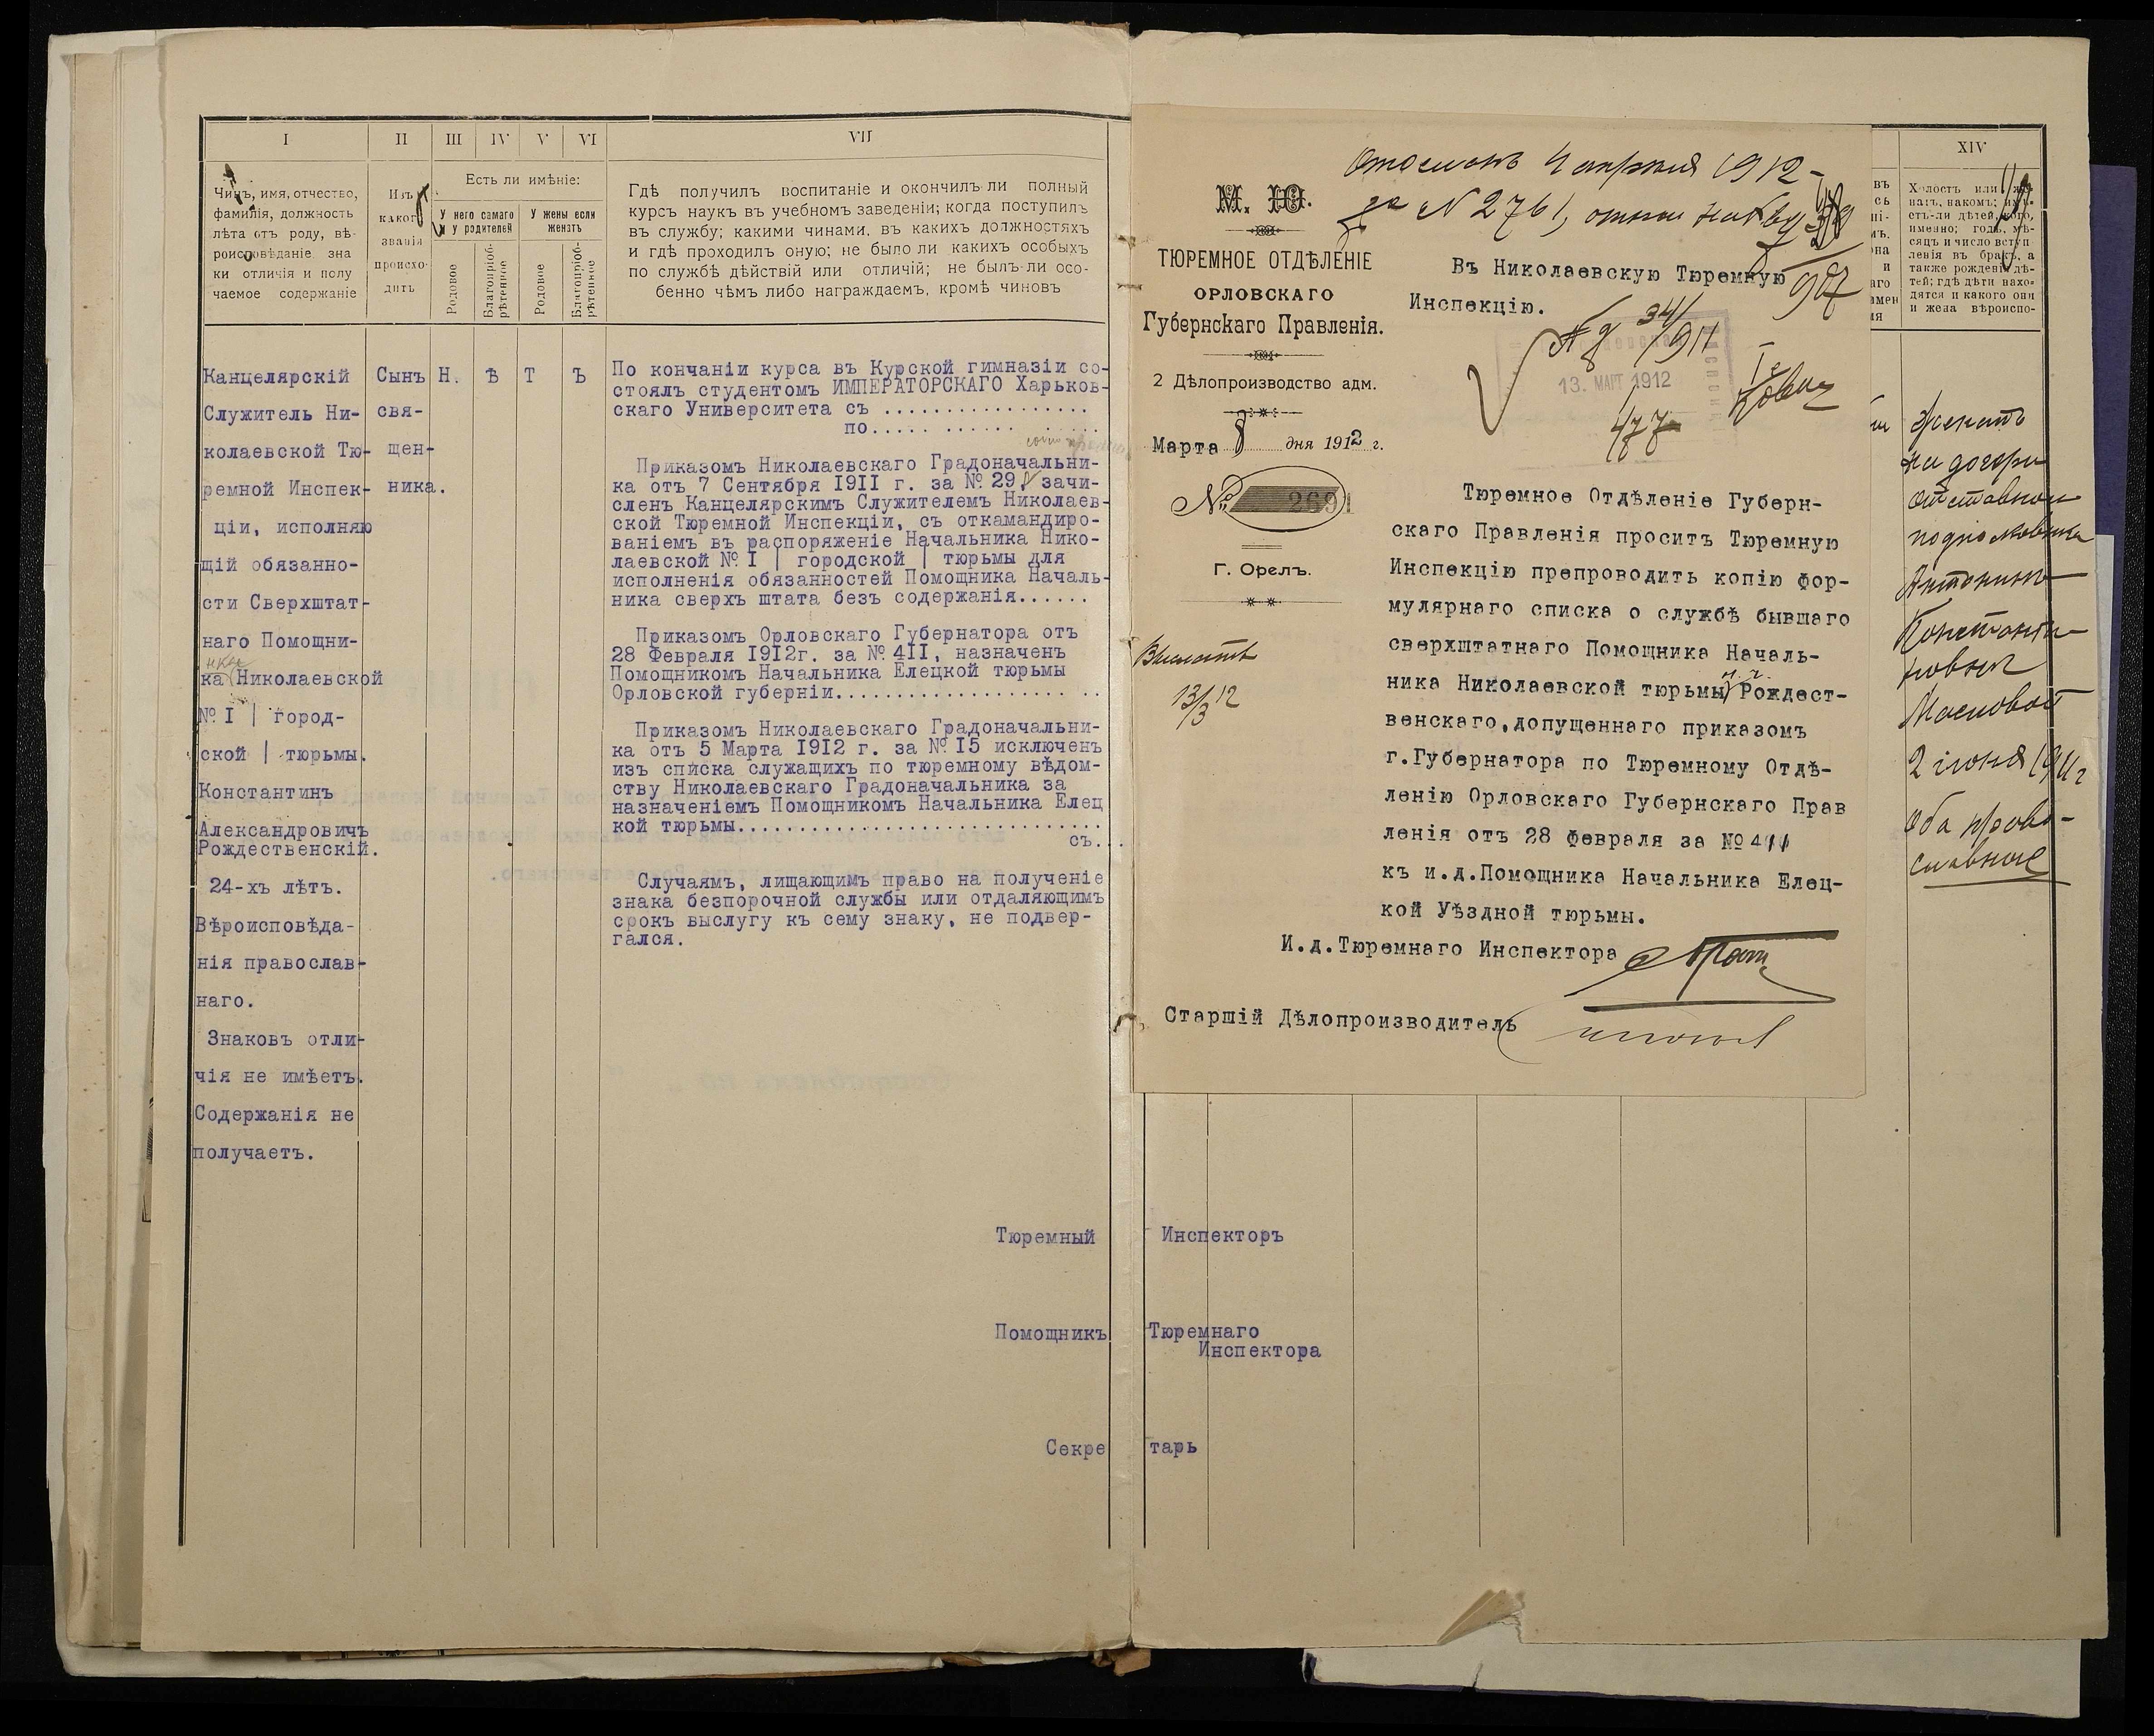 I
II
III
IV
V
VI
VII
Чинъ, имя, отчество,
фамилія, должность
лѣта отъ роду, вѣ-
роисповѣданіе, зна
ки отличія и полу
чаемое содержаніе
Изъ
какого
званія
происхо-
дитъ
Есть ли имѣніе:
У него самаго
и у родителей
У жены если
женатъ
Родовое
Благопріоб-
рѣтенное
Родовое
Благопріоб-
рѣтенное
Гдѣ получилъ воспитаніе и окончилъ-ли полный
курсъ наукъ въ учебномъ заведеніи; когда поступилъ
въ службу; какими чинами, въ какихъ должностяхъ
и гдѣ проходилъ оную; не было ли какихъ особыхъ
по службѣ дѣйствій или отличій; не былъ-ли осо-
бенно чѣмъ либо награждаемъ, кромѣ чиновъ
Канцелярскій
Служитель Ни-
колаевской Тю-
ремной Инспек-
ціи, исполняю
щій обязанно-
сти Сверхштат-
наго Помощни-
ка Николаевской
№ I | город-
ской | тюрьмы.
Константинъ
Александровичъ
Рождественскій.
24-хъ лѣтъ.
Вѣроисповѣда-
нія православ-
наго.
Знаковъ отли-
чія не имѣетъ.
Содержанія не
получаетъ.
Сынъ
свя-
щен-
ника.
Н. ѣ т ъ
По кончаніи курса въ Курской гимназіи со-
стоялъ студентомъ ИМПЕРАТОРСКАГО Харьков-
скаго Университета съ .................
по..... ...... .....
Приказомъ Николаевскаго Градоначальни-
ка отъ 7 Сентября 1911 г. за № 29, зачи-
сленъ Канцелярскимъ Служителемъ Николаев-
ской Тюремной Инспекціи, съ откамандиро-
ваніемъ въ распоряженіе Начальника Нико-
лаевской № I | городской | тюрьмы для
исполненія обязанностей Помощника Началь-
ника сверхъ штата безъ содержанія......
Приказомъ Орловскаго Губернатора отъ
28 Февраля 1912г. за № 411, назначенъ
Помощникомъ Начальника Елецкой тюрьмы
Орловской губерніи................... ..
Приказомъ Николаевскаго Градоначальни-
ка отъ 5 Марта 1912 г. за № 15 исключенъ
изъ списка служащихъ по тюремному вѣдом-
ству Николаевскаго Градоначальника за
назначеніемъ Помощникомъ Начальника Елец
кой тюрьмы..............................
съ...
Случаямъ, лищающимъ право на полученіе
знака безпорочной службы или отдаляющимъ
срокъ выслугу къ сему знаку, не подвер-
гался.
Тюремный Инспекторъ
Помощникъ Тюремнаго
Инспектора
Секретарь
М. Ю.
ТЮРЕМНОЕ ОТДѢЛЕНІЕ
ОРЛОВСКАГО
Губернскаго Правленія.
2 Дѣлопроизводство адм.
Марта 8 дня 1912 г.
№ 2691
Г. Орелъ.
13/3 12
4 апрѣля 1912
за № 2761,
Въ Николаевскую Тюремную
Инспекцію.
34/911
13. МАРТ 1912
477
Тюремное Отдѣленіе Губерн-
скаго Правленія проситъ Тюремную
Инспекцію препроводить копію фор-
мулярнаго списка о службѣ бывшаго
сверхштатнаго Помощника Началь-
ника Николаевской тюрьмы Рождест-
венскаго,допущеннаго приказомъ
г.Губернатора по Тюремному Отдѣ-
ленію Орловскаго Губернскаго Прав
ленія отъ 28 февраля за № 411
къ и.д.Помощника Начальника Елец-
кой Уѣздной тюрьмы.
И.д.Тюремнаго Инспектора
Старшій Дѣлопроизводитель
XIV
Холостъ или же-
натъ, накомъ; имѣ-
етъ-ли дѣтей, кого,
именно; годъ, мѣ-
сяцъ и число вступ
ленія въ бракъ, а
также рожденія дѣ-
тей; гдѣ дѣти нахо-
дятся и какого они
и жена вѣроиспо-
Женатъ
на дочери
отставного
подполковника
Антонинѣ
Константи-
новнѣ
Масловой
2 іюня 1911 г
Оба право-
славные